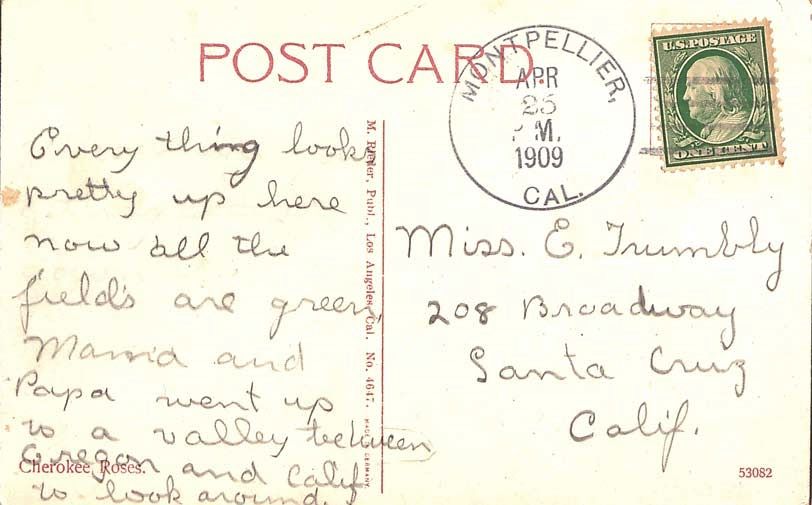 POST CARD.
MONTPELLIER,
APR
25
P M.
1909
CAL.
U.S. POSTAGE
ONE CENT
Every thing looks
pretty up here
now all the
fields are green,
Mama and
Papa went up
to a valley between
Oregon and Calif
to look around.
M. Rieder, Publ., Los Angeles, Cal. No. 4647. MADE GERMANY.
Miss. E. Trumbly
208 Broadway
Santa Cruz
Calif.
Cherokee Roses.
53082